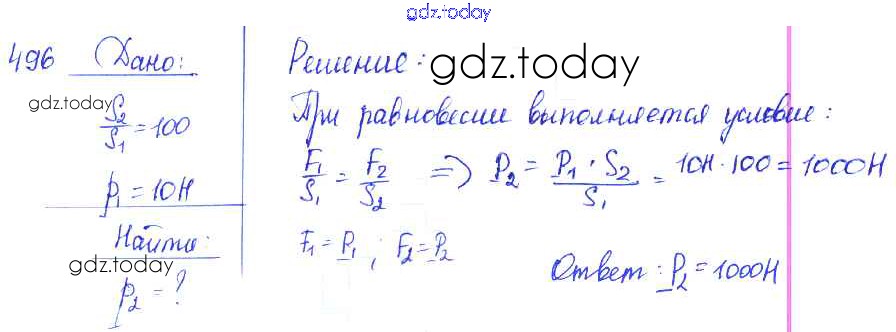 gdz.today
496 Дано:
gdz.today
S₂/S₁ = 100
p₁ = 10Н
Найти:
gdz.today
p₂ = ?
Решение:
gdz.today
При равновесии выполняется условие:
F₁/S₁ = F₂/S₂ => P₂ = P₁ · S₂/S₁ = 10Н · 100 = 1000Н
F₁ = P₁ ; F₂ = P₂
Ответ: P₂ = 1000Н